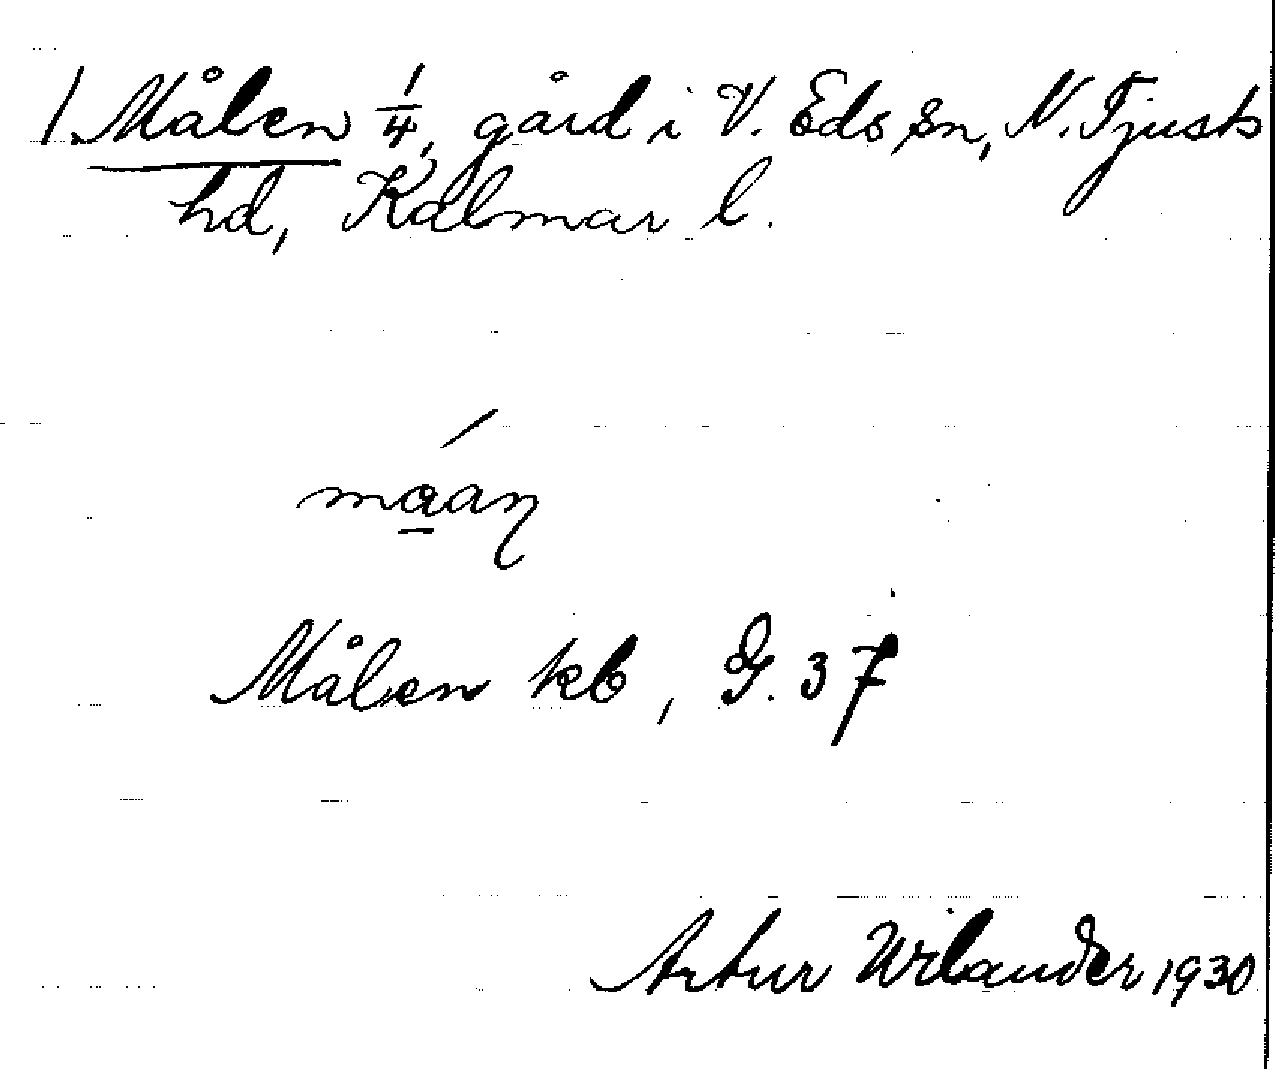 1. Målen 1/4, gård i V. Eds sn, N. Tjusts
hd, Kalmar l.
Målen kb, G. 37
Artur Wilander 1930